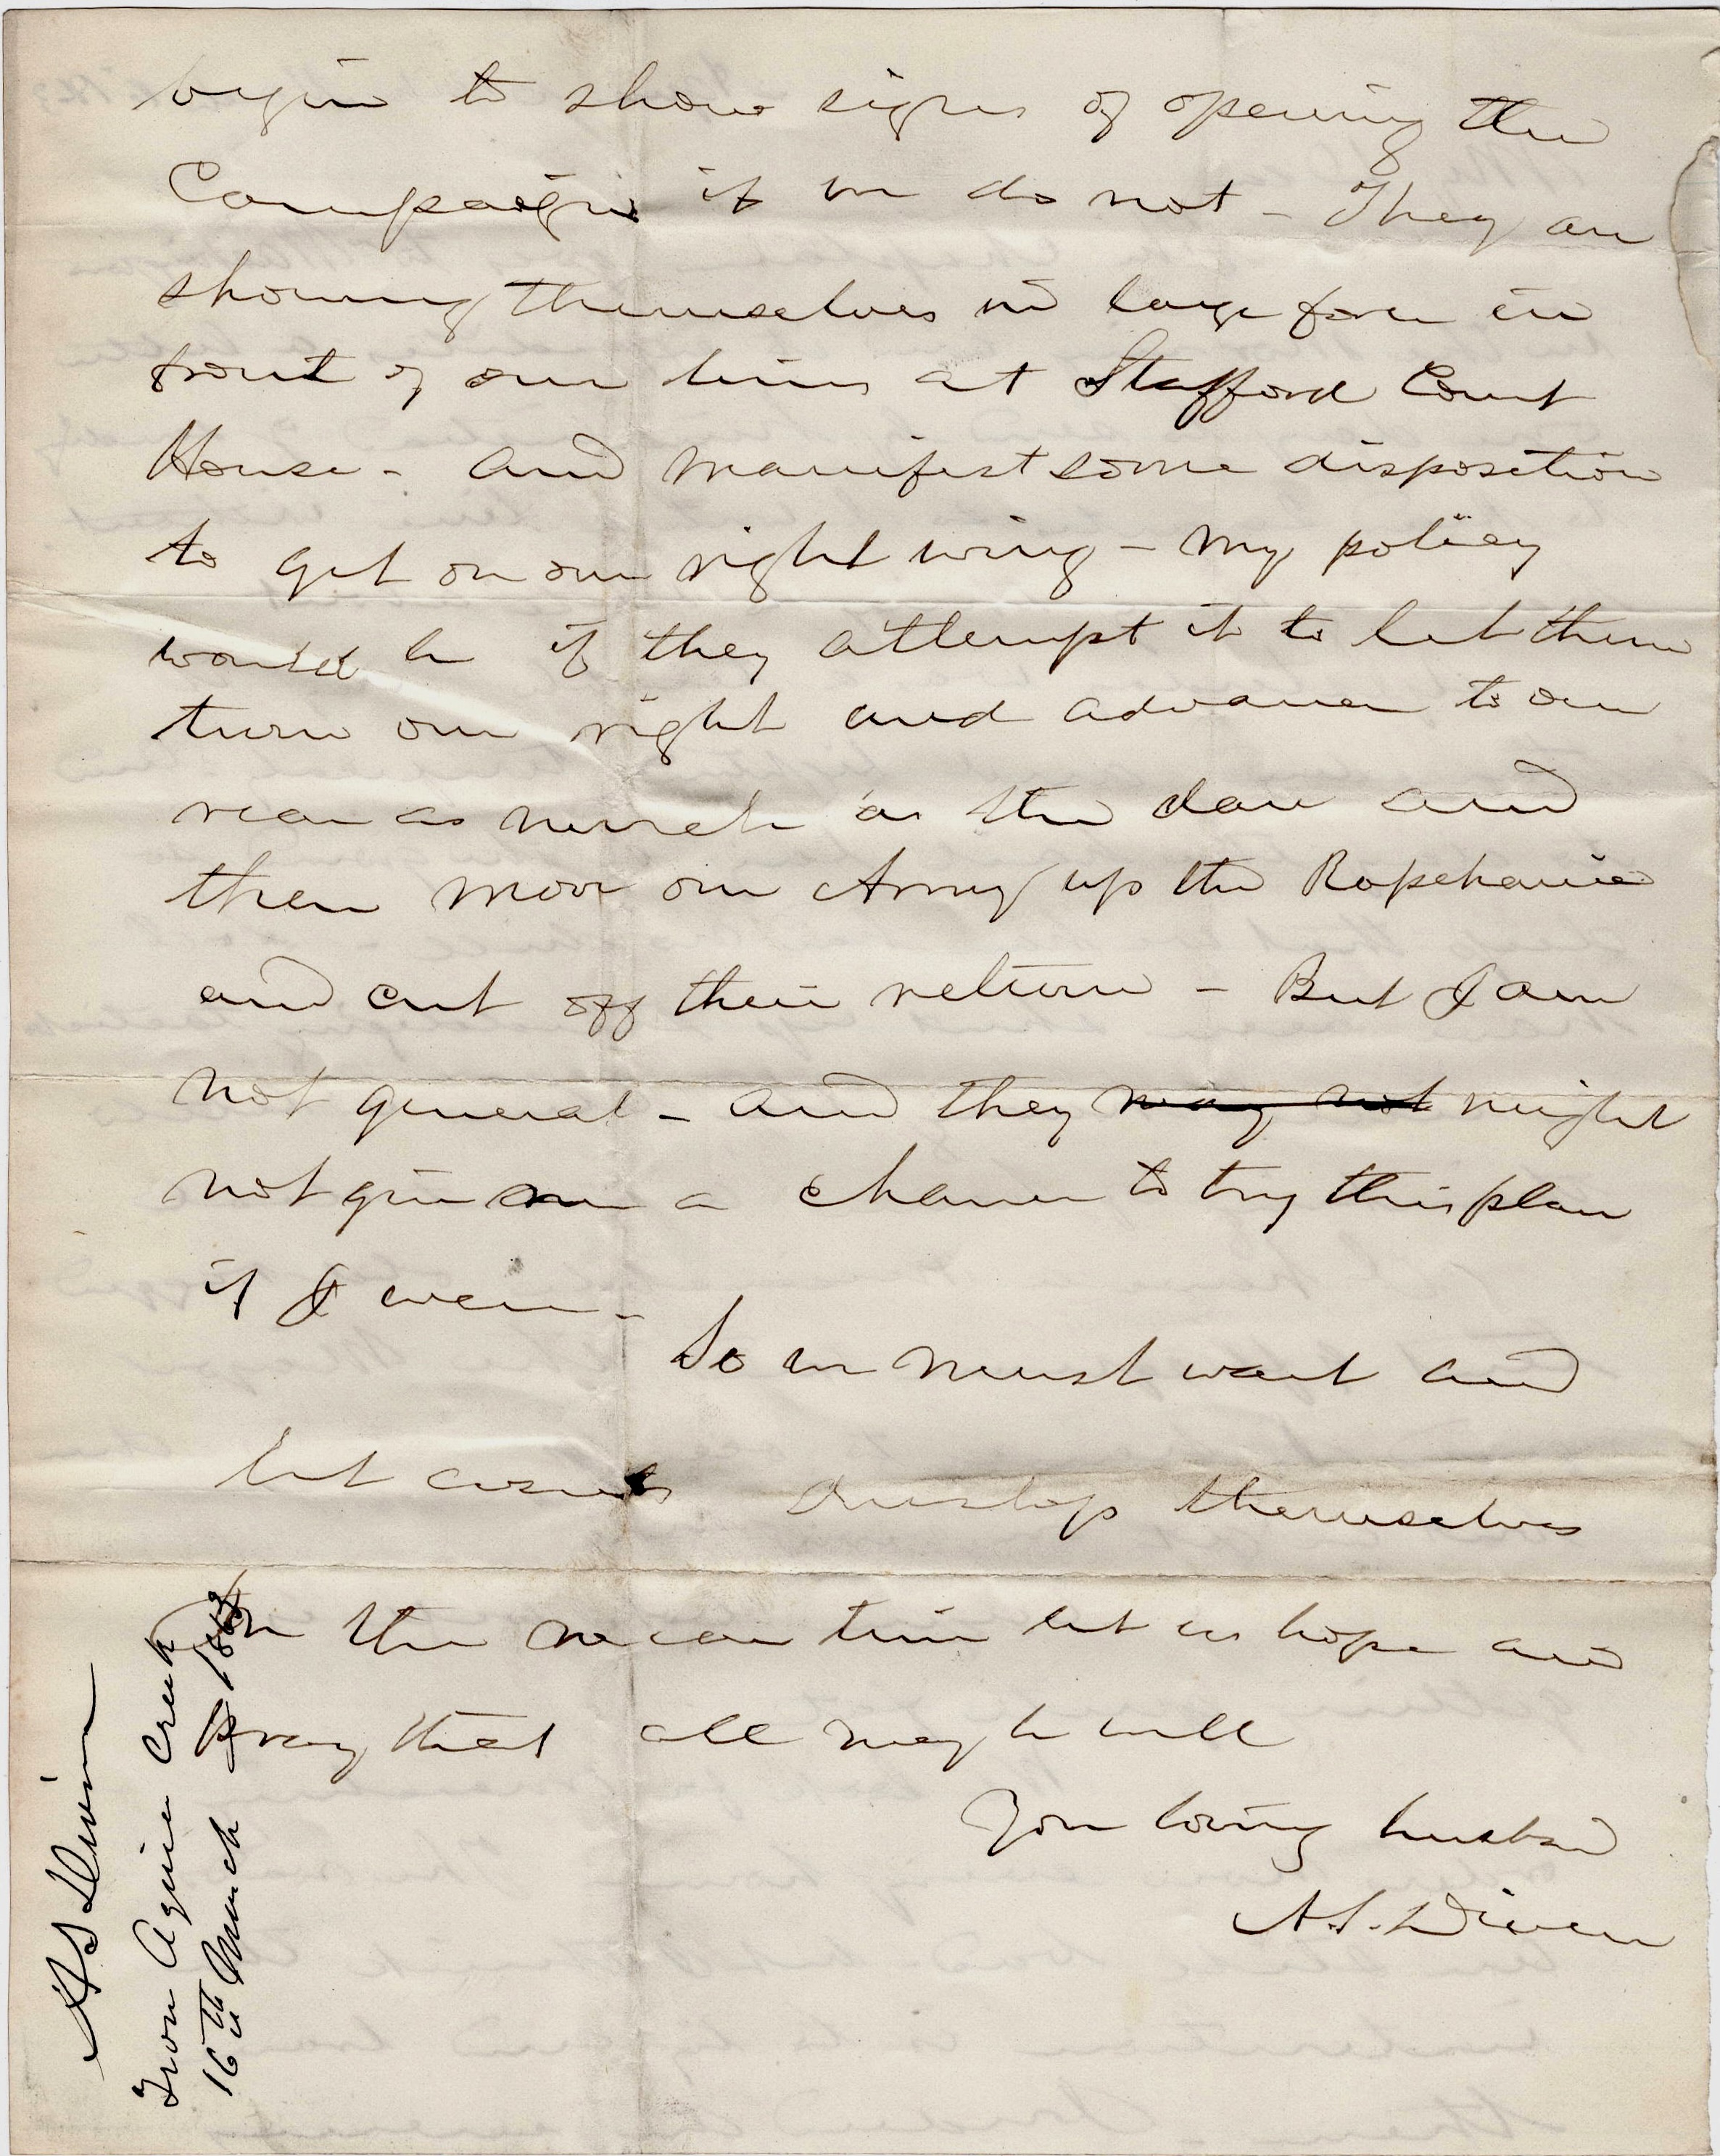 begin to show signs of opening the
Campaign if we do not - They are
showing themselves in large force in
front of our lines at Stafford Court
House - and manifest some disposition
to get on our right wing - My policy
would be if they attempt it to let them
turn our right and advance to our
rear as much as the dare and
then move our Army up the Rapehanie
and cut off their return - But I am
not general - and they may not might
not give me a chance to try this plan
if I were -
So we must wait and
let events develop themselves
In the mean time let us hope and
pray that all may be well
Your loving husband
A.S. Diven
A S Diven
From Aquia Creek
16th March 1863